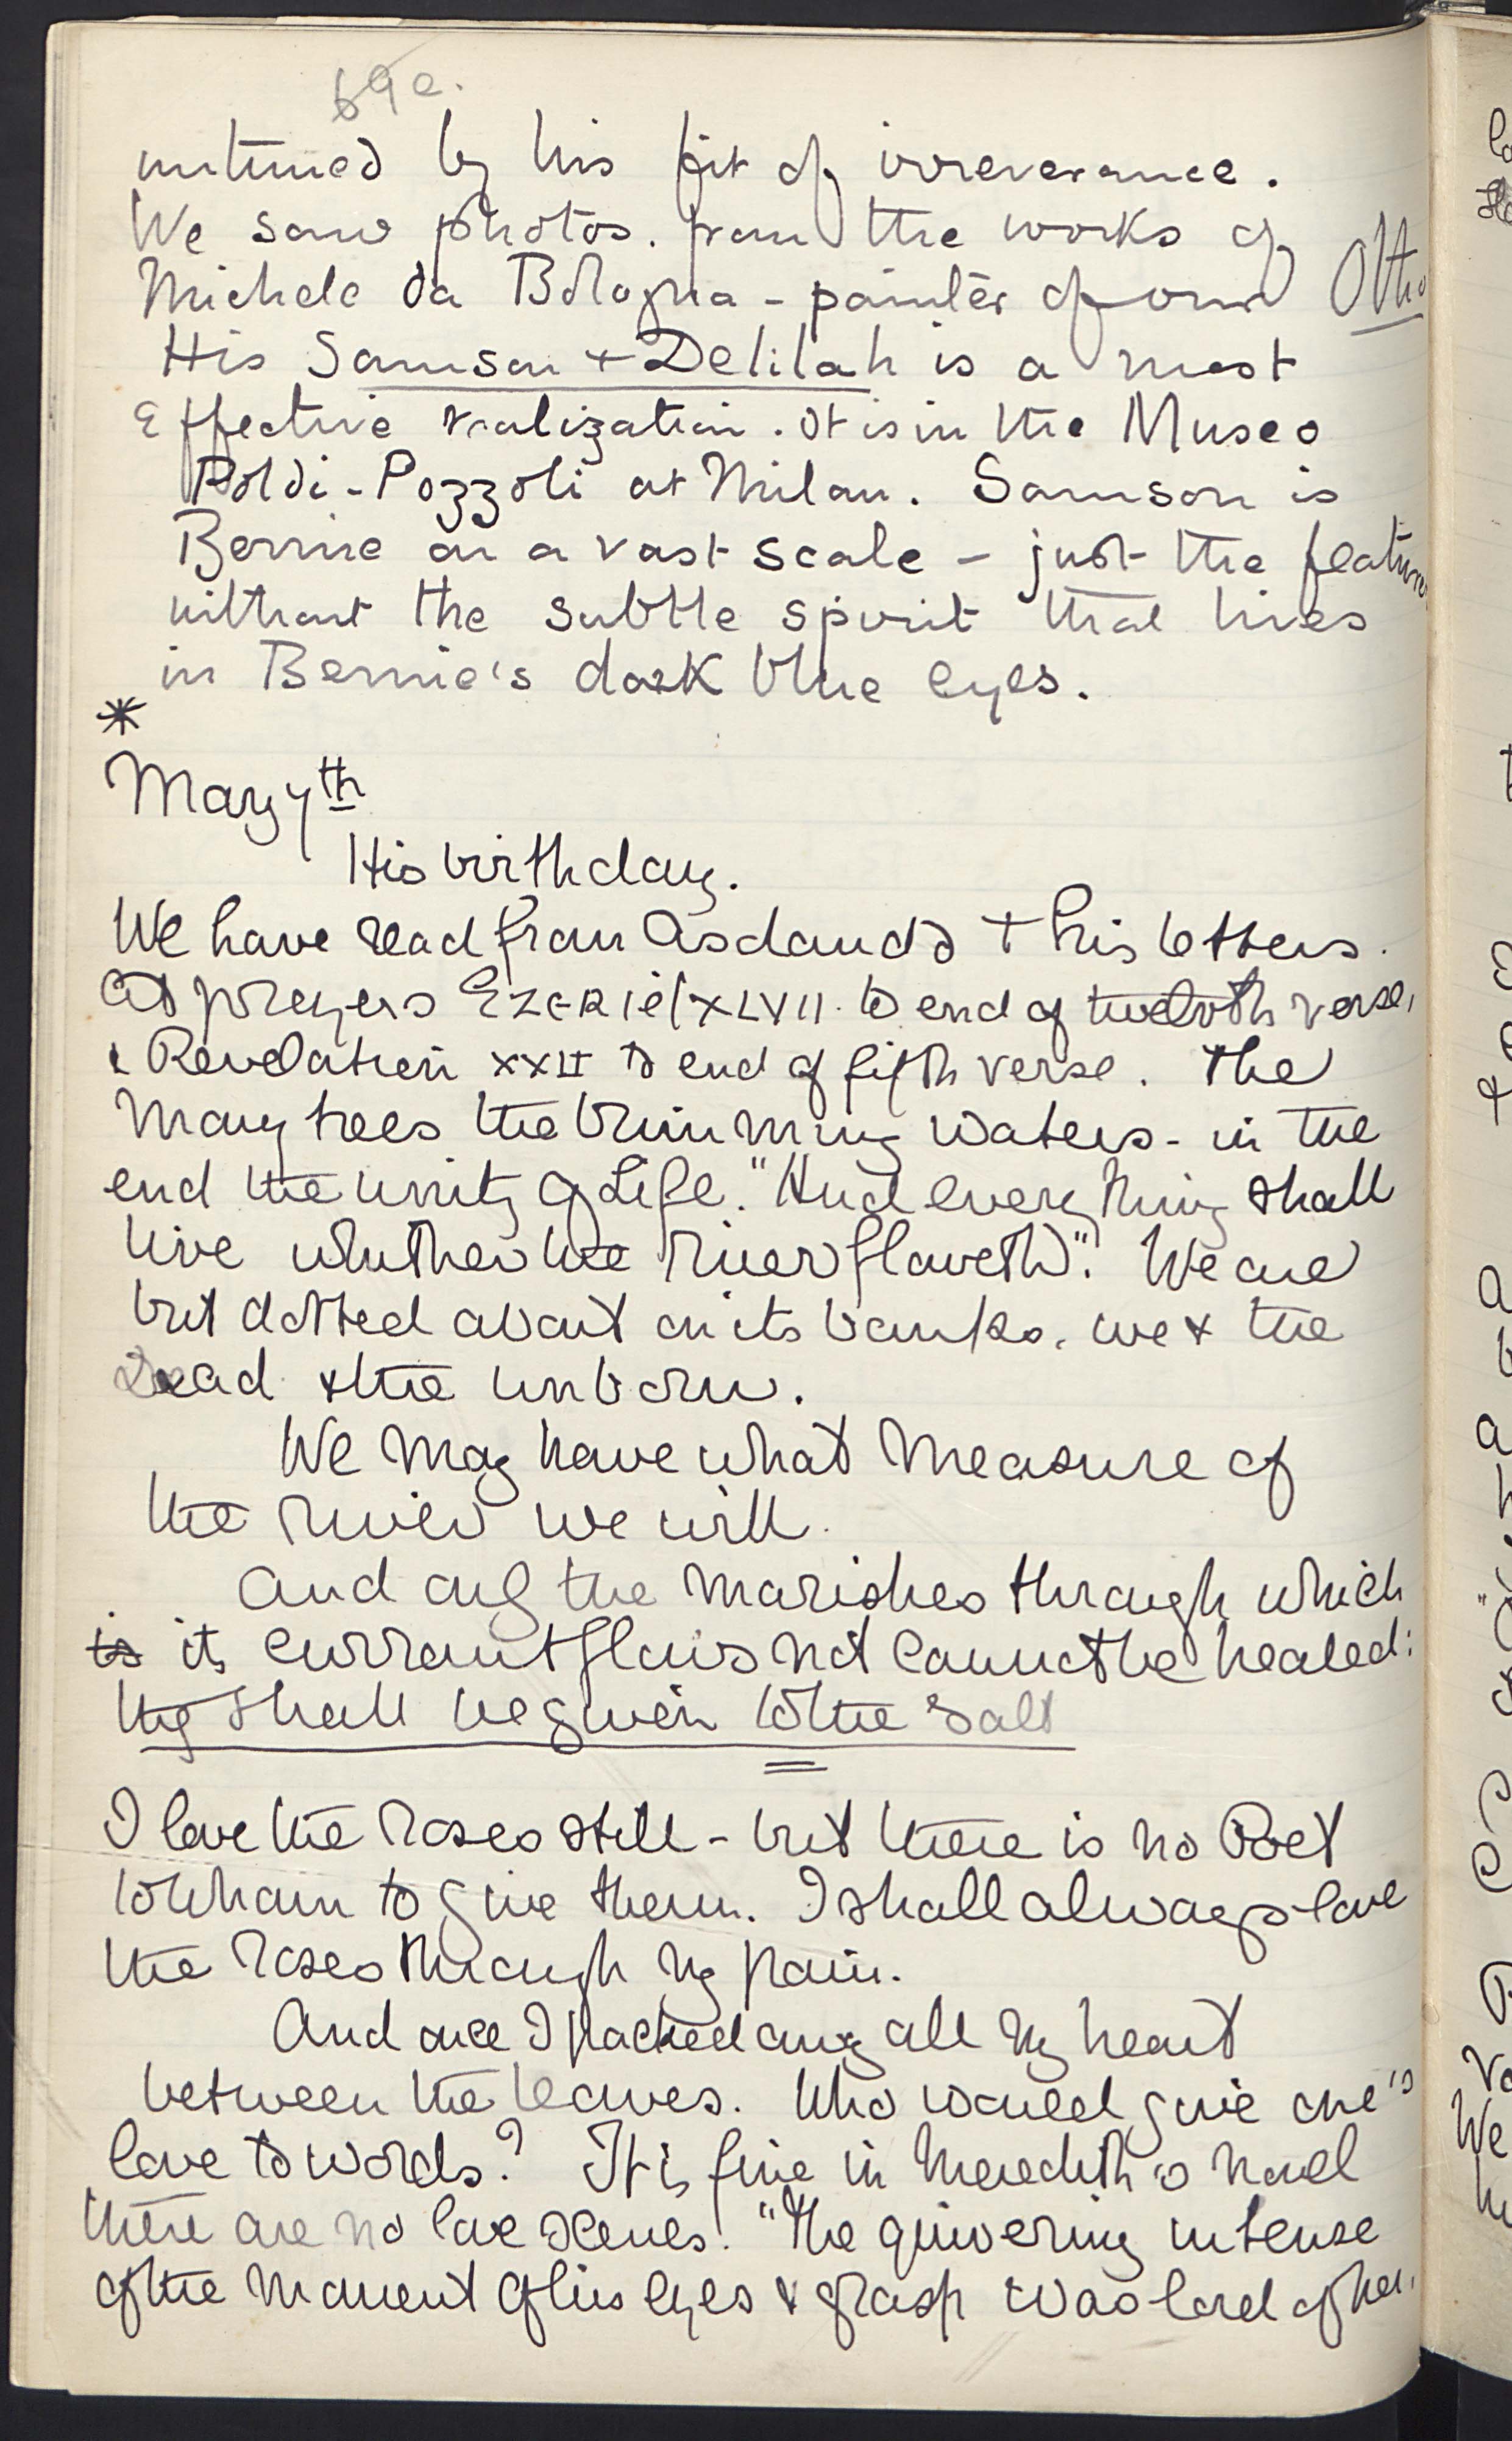 69e.
untuned by his fit of irreverance.
We saw photos. from the works of
Michele da Bologna - painter of our Otho
His Samson + Delilah is a most
Effective realization. It is in the Museo
Poldi-Pozzoli at Milan. Samson is
Bernie on a vast scale - just the features
without the subtle spirit that lives
in Bernie's dark blue eyes.
*
May 7th
His birthday.
We have read from Asolando + his letters.
At prayers Ezekiel XLVII. to end of twelvth verse,
& Revelation XXII to end of fifth verse. The
Many trees the brimming waters - in the
end the unity of Life. "And every thing shall
live whither the river floweth". We are
but dotted about on its banks. we & the
Dead & the unborn.
We may have what measure of
the river we will.
And only the marishes through which
is its currant flows not cannot be healed:
they shall be given to the salt
I love the roses still - but there is no Poet
to whom to give them. I shall always love
the roses through my pain.
And once I packed away all my heart
between the leaves. Who would give one's
love to words? It is fine in Meredith's novel
there are no love scenes. "The quivering intense
of the moment of his eyes & grasp was lord of her,